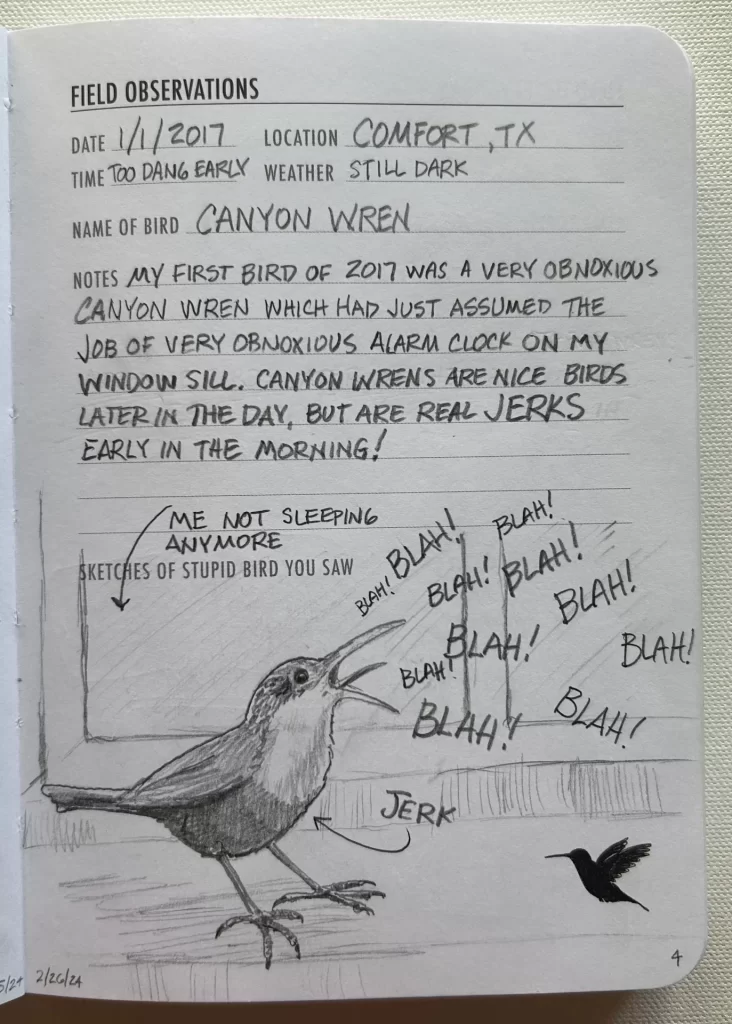 FIELD OBSERVATIONS
DATE 1/1/2017 LOCATION COMFORT, TX
TIME TOO DANG EARLY WEATHER STILL DARK
NAME OF BIRD CANYON WREN
NOTES MY FIRST BIRD OF 2017 WAS A VERY OBNOXIOUS
CANYON WREN WHICH HAD JUST ASSUMED THE
JOB OF VERY OBNOXIOUS ALARM CLOCK ON MY
WINDOW SILL. CANYON WRENS ARE NICE BIRDS
LATER IN THE DAY, BUT ARE REAL JERKS
EARLY IN THE MORNING!
ME NOT SLEEPING
ANYMORE
SKETCHES OF STUPID BIRD YOU SAW
BLAH!
BLAH!
BLAH!
BLAH!
BLAH!
BLAH!
BLAH!
BLAH!
BLAH!
BLAH!
BLAH!
JERK
4
2/26/24